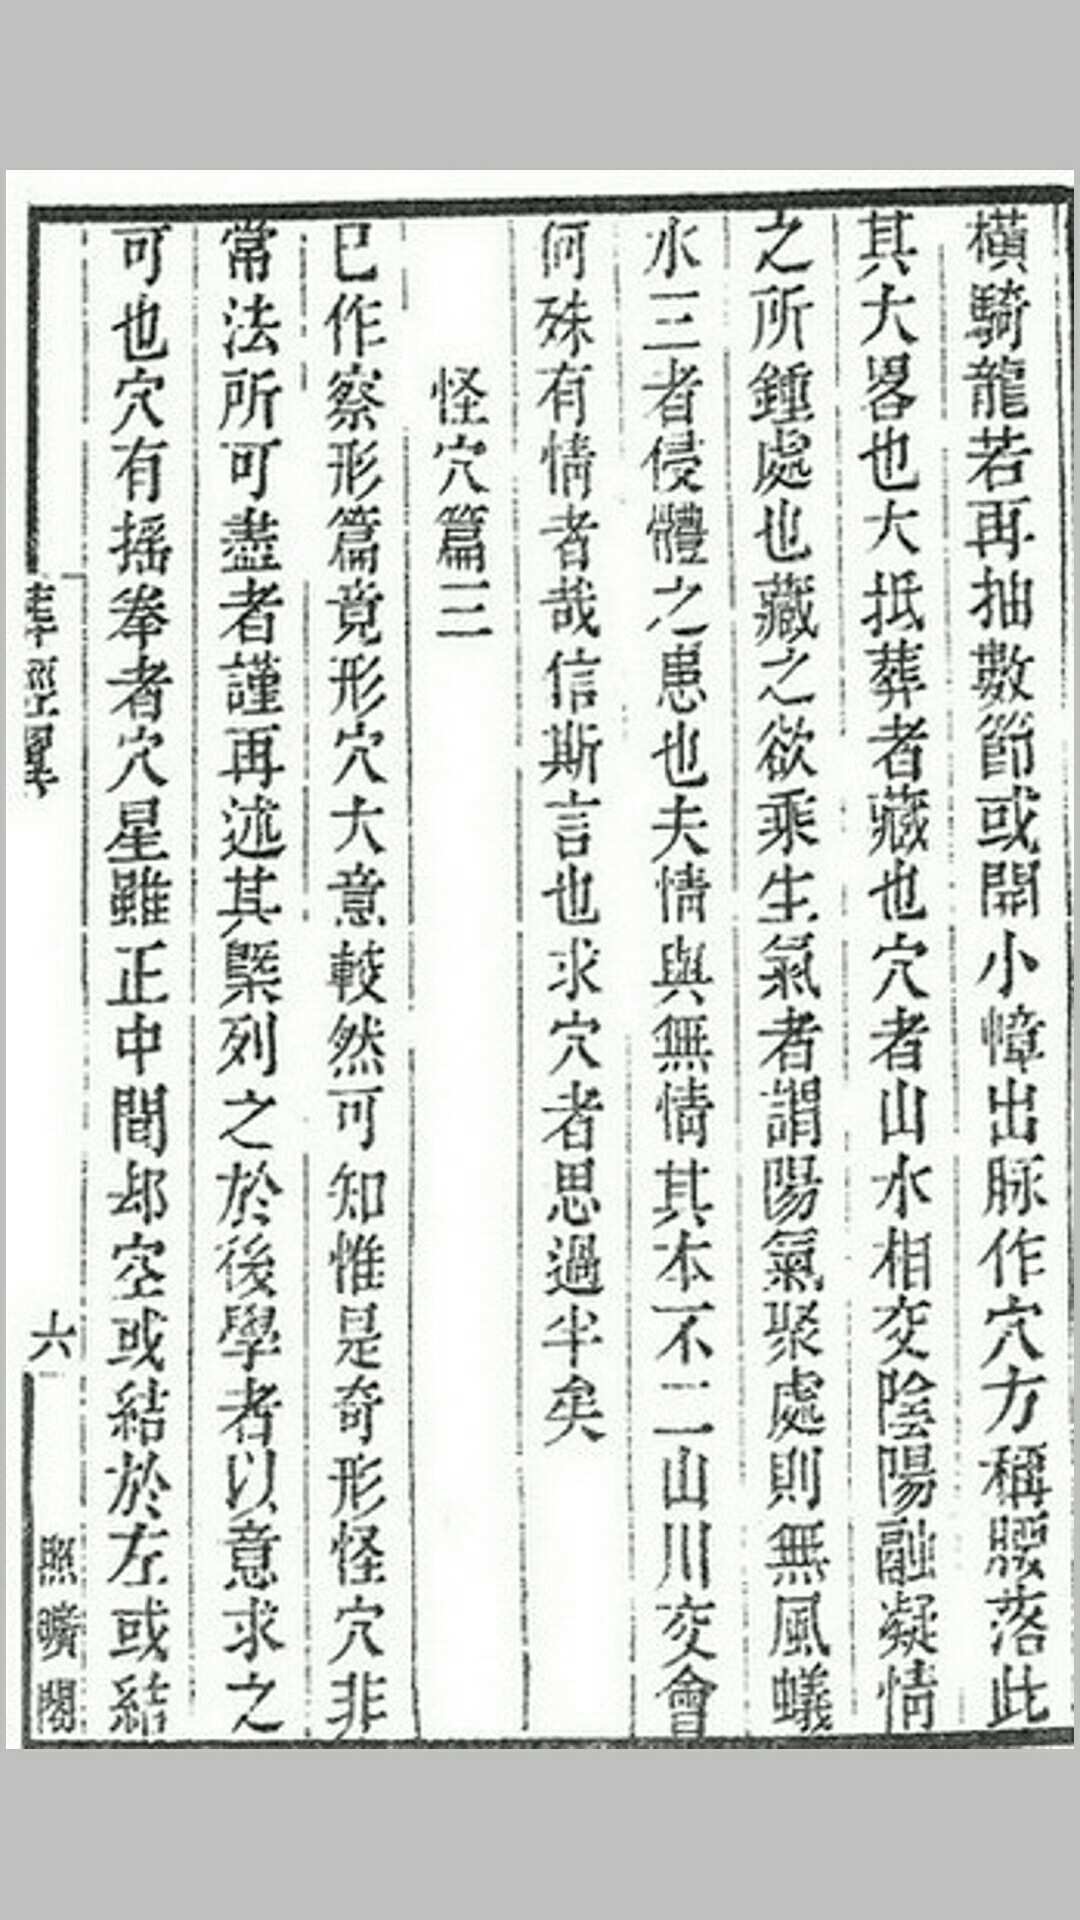 橫騎龍若再抽數節或開小幛出脉作穴方稱腰落此
其大畧也大抵葬者藏也穴者山水相交陰陽融凝情
之所鍾處也藏之欲乘生氣者謂陽氣聚處則無風蟻
水三者侵體之患也夫情與無情其本不二山川交會
何殊有情者哉信斯言也求穴者思過半矣
怪穴篇三
巳作察形篇竟形穴大意較然可知惟是奇形怪穴非
常法所可盡者謹再述其槩列之於後學者以意求之
可也穴有揺拳者穴星雖正中間却空或結於左或結
葬經翼
六
照曠閣